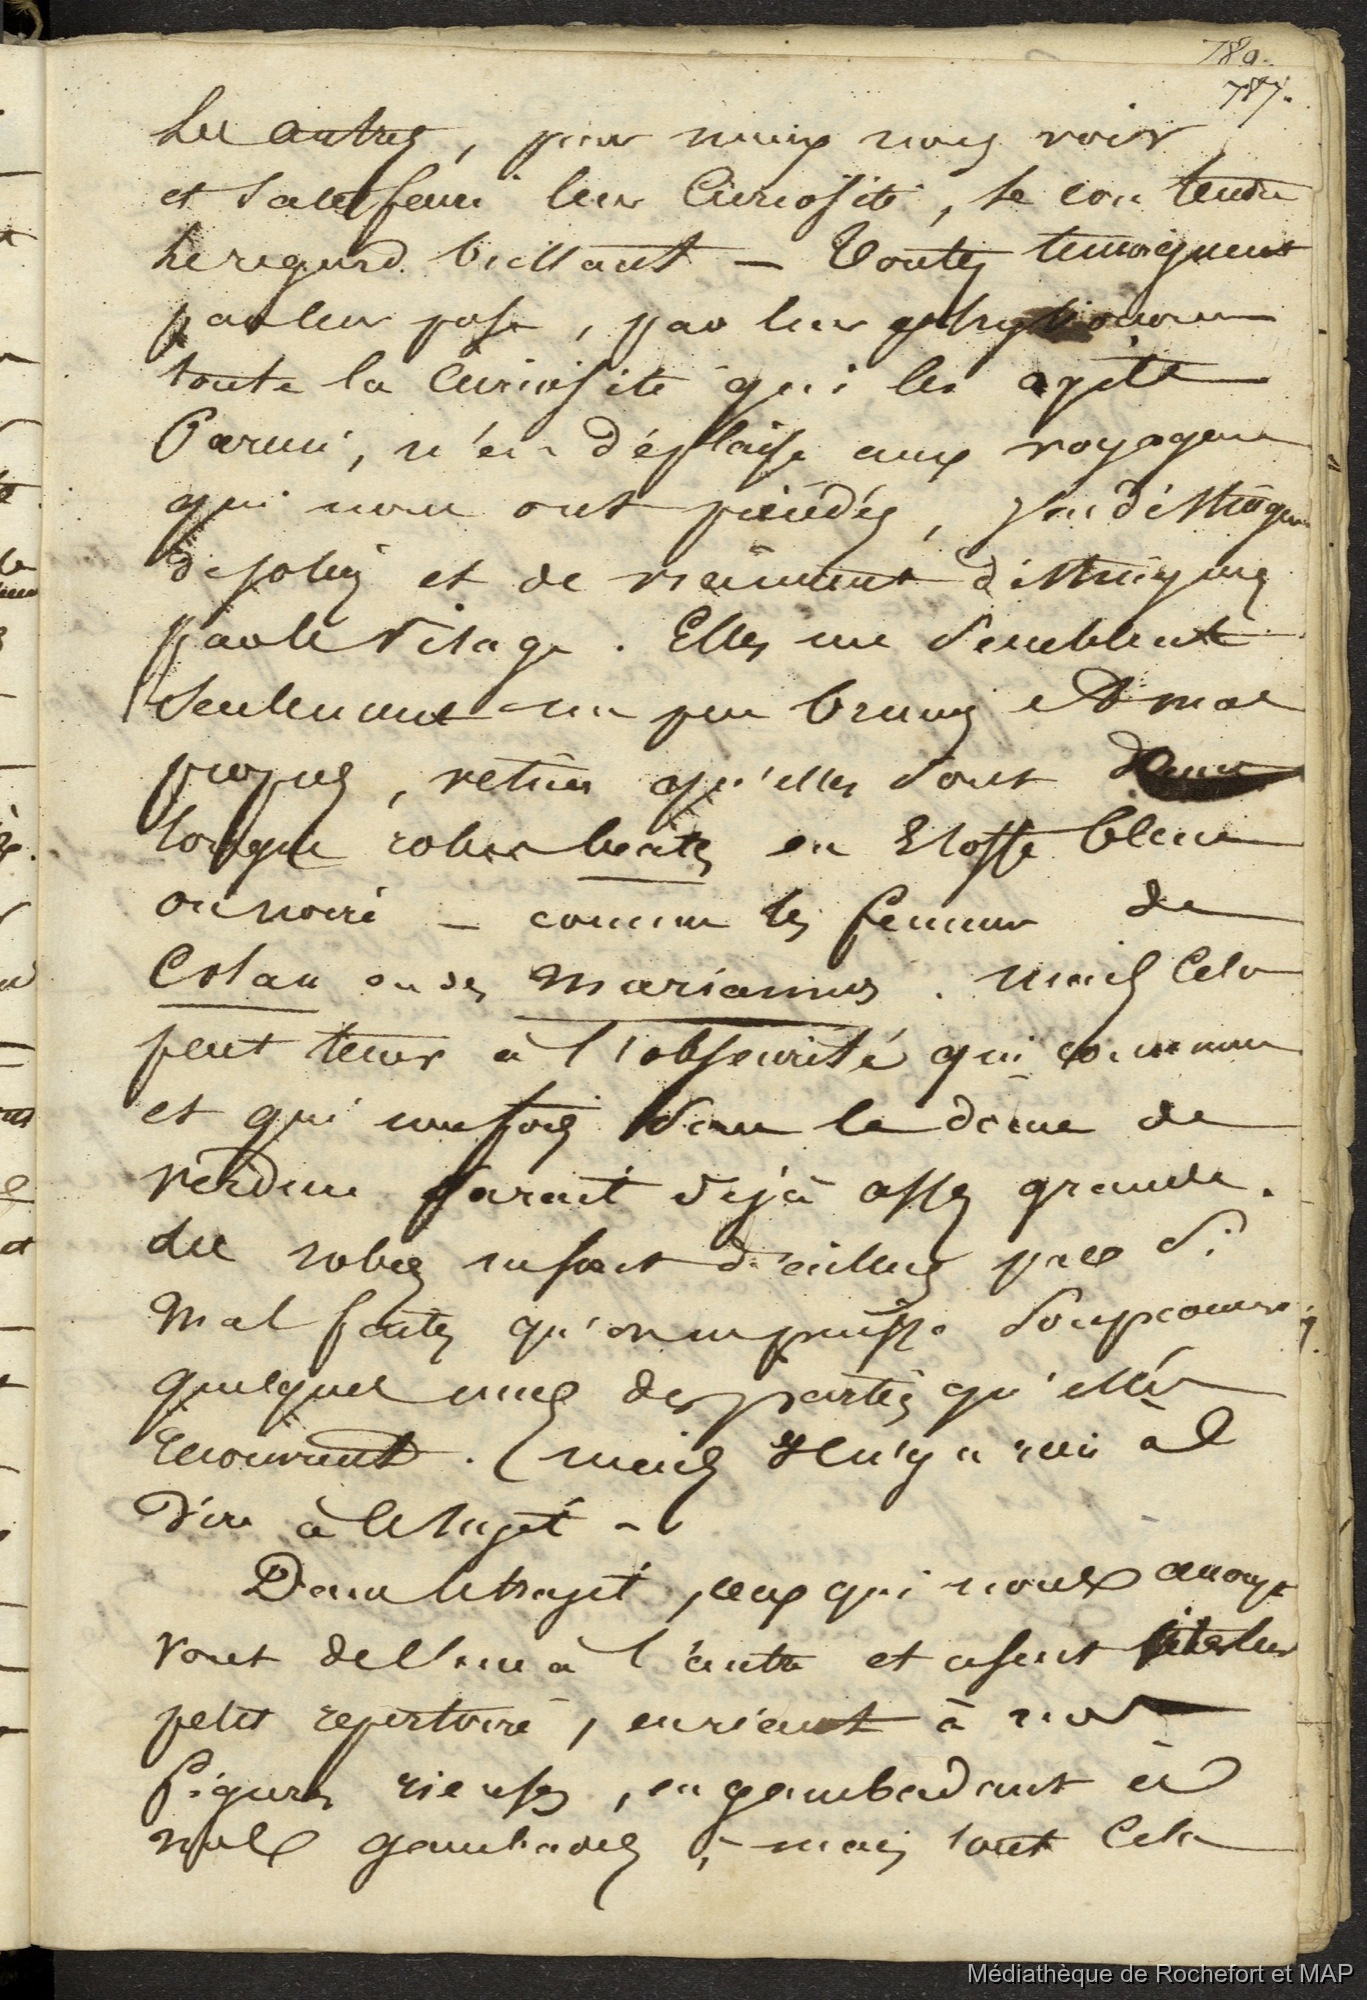 789.
787.
les autres, pour mieux nous voir
et satisfaire leur curiosité, le cou tendu
le regard brillant — Toutes temoignent
par leur pose, par leur
toute la curiosité qui les agite
Parmi, n'en déplaise aux voyageurs
qui nous ont précédés, j'en distingue
de jolies et de vraiment distinguées
par le visage. Elles me semblent
seulement un peu brunes et mal
propres, vetues qu'elles sont dans
longues robes lentes en Etoffe bleue
ou noire — comme les femmes de
Colan ou des Mariannes. mais cela
peut tenir à l'obscurité qui commence
et qui une fois dans le dome de
verdure parait déjà assez grande.
les robes ne sont d'ailleurs pas si
mal faites qu'on ne puisse soupconner
quelques unes des parties qu'elles
recouvrent. (mais Il n'y a rien à
dire à le sujet —
Dans le trajet, ceux qui nous
vont de l'une à l'autre et usent
petit repertoire, en riant à nos
figures rieuses, en gambadant à
nos gambades ; mais tout cela
Médiathèque de Rochefort et MAP